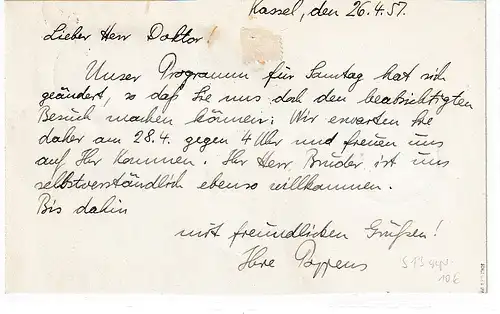 Kassel, den 26.4.57.
Lieber Herr Doktor!
Unser Programm für Samtag hat sich
geändert, so daß Sie uns doch den beabsichtigten
Besuch machen können. Wir erwarten Sie
daher am 28.4. gegen 4 Uhr und freuen uns
auf Ihr Kommen. Ihr Herr Bruder ist uns
selbstverständlich ebenso willkommen.
Bis dahin
mit freundlichen Grüßen!
Ihre Poppens
10€